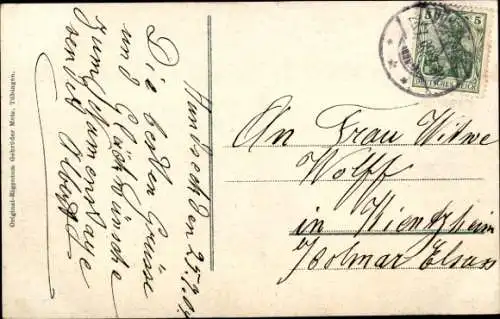 Original-Eigentum Gebrüder Metz, Tübingen.
den 25.
Die besten Grüsse
und Glückwünsche
zum Namenstage
sendet
Albert
5 5
DEUTSCHES REICH
An Frau Witwe
Wolff
in Kientzheim
Kolmar Elsass